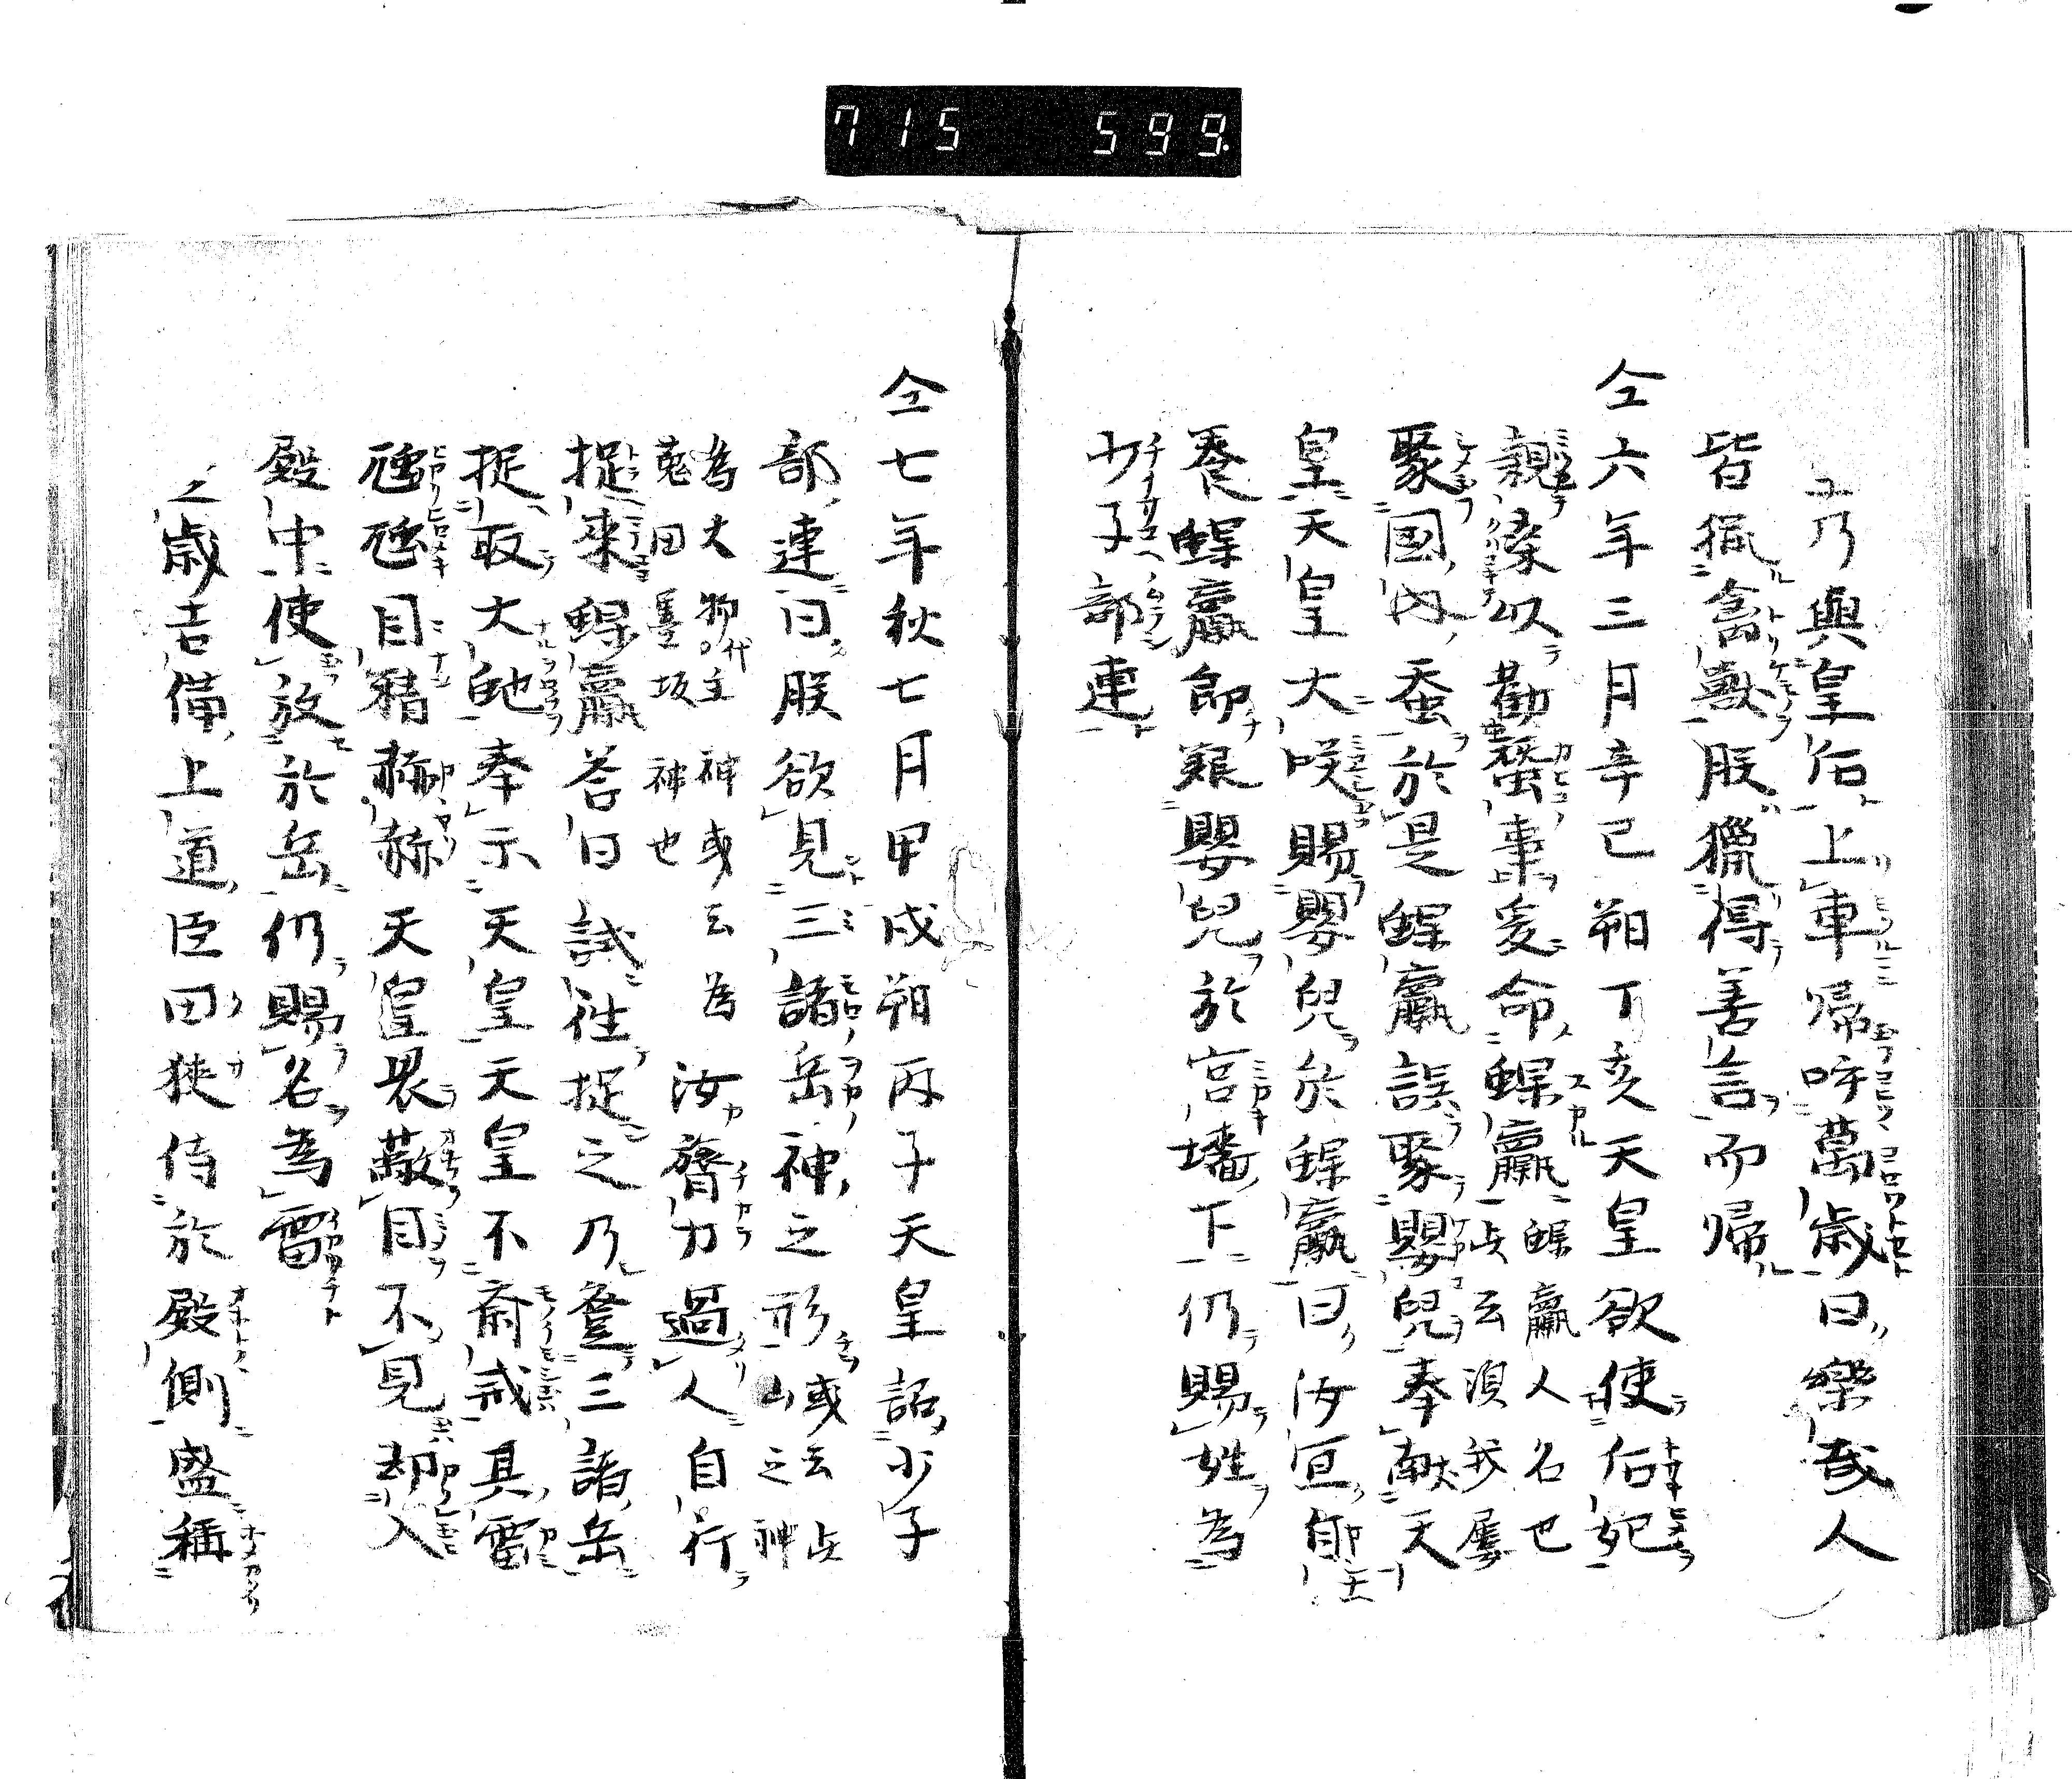 715 599.
乃與皇后上車帰呼萬歳曰樂哉人
皆猟禽獣朕獵得善言而帰
仝六年三月辛巳朔丁亥天皇欲使后妃
親桒以勸蚕事爰命蜾蠃蜾蠃人名也此云湏我屡
聚國内蚕於是蜾蠃誤聚嬰兒奉献天
皇天皇大咲賜嬰兒於蜾蠃曰汝宜自
養蜾蠃即養嬰兒於宮墻下仍賜姓為
少子部連
仝七年秋七月甲戌朔丙子天皇詔少子
部連曰朕欲見三諸岳神之形或云此山之神
為大物代主神或云為菟田墨坂神也汝膂力過人自行
捉來蜾蠃荅曰試往捉之乃登三諸岳
捉取大蛇奉示天皇天皇不斎戒其雷
虺虺目精赫赫天皇畏蔽目不見却入
殿中使放於岳仍賜名為雷
歳吉備上道臣田狭侍於殿側盛稱